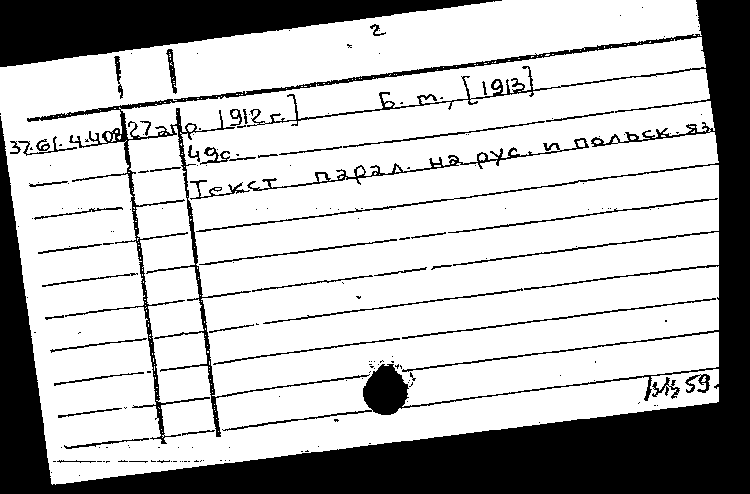 2
37.61.4.408 27 апр. 1912 г.] Б. т., [1913]
49с.
Текст парал. на рус. и польск. яз.
59.